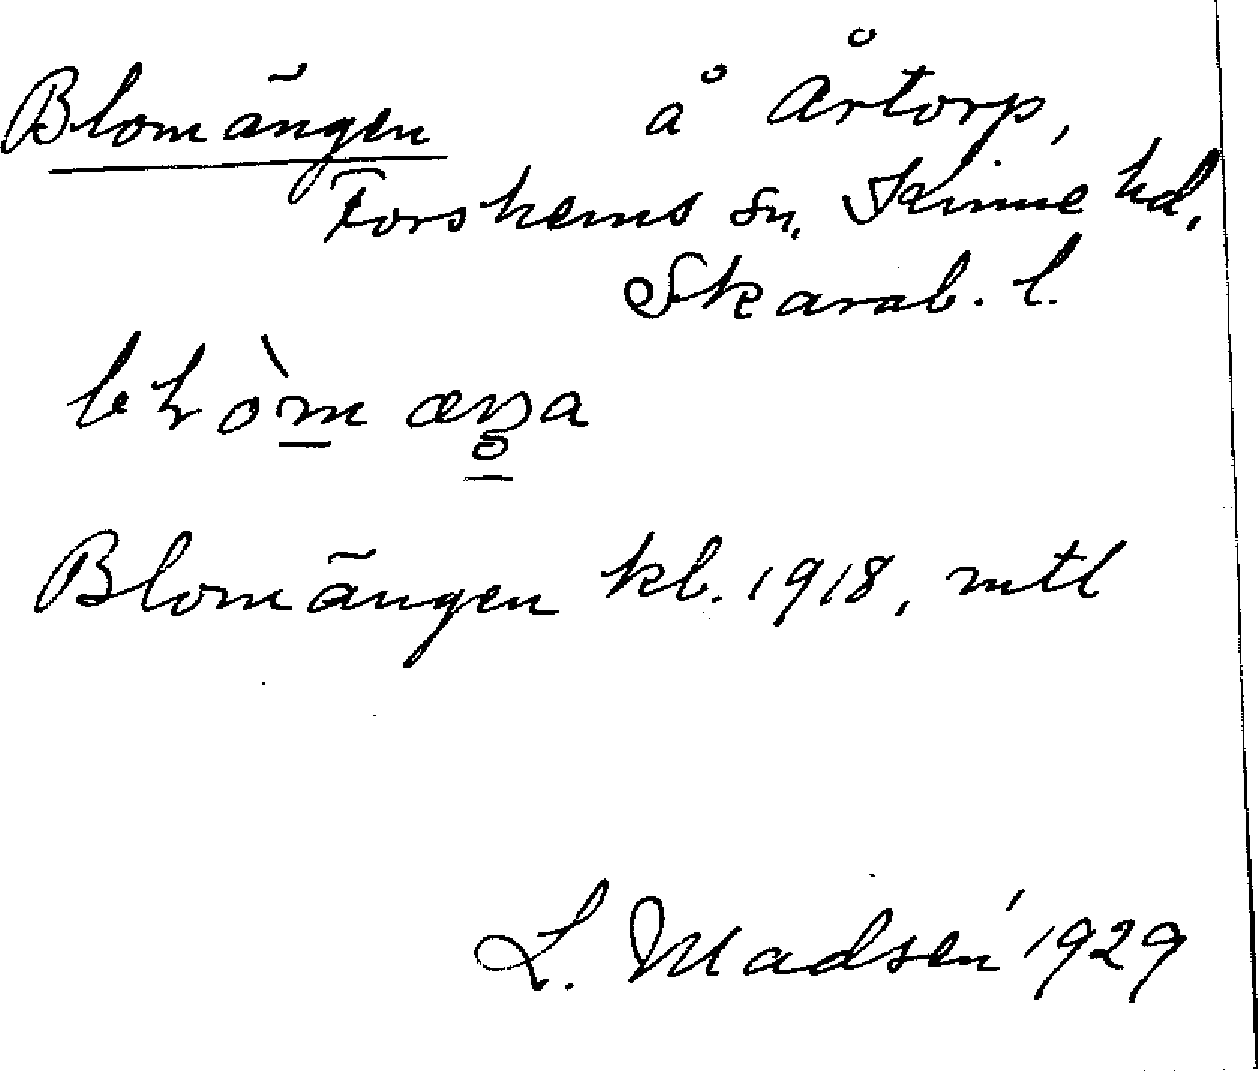 Blomängen å Årtorp,
Forshems sn, Kinne hd,
Skarab. l.
Blomängen kb. 1918, mtl
L. Madsén 1929